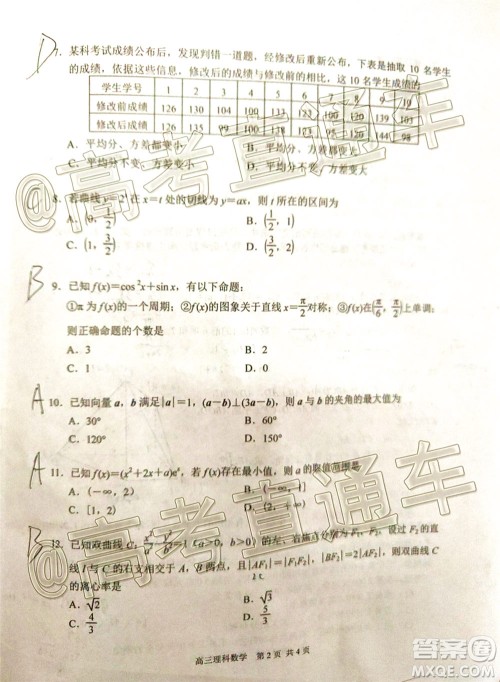 D
7. 某科考试成绩公布后，发现判错一道题，经修改后重新公布，下表是抽取 10 名学生
的成绩，依据这些信息，修改后的成绩与修改前的相比，这 10 名学生成绩的
学生学号 1 2 3 4 5 6 7 8 9 10
修改前成绩 126 130 104 100 133
修改后成绩 126 135 99 100 138 144 98
A．平均分、方差都变小 B．平均分
C．平均分不变、方差变小 D．平均分不变、方差变大
A
8. 若曲线 y=2ˣ 在 x=t 处的切线为 y=ax，则 t 所在的区间为
A．(0, 1/2) B．(1/2, 1)
C．(1, 3/2) D．(3/2, 2)
B
9. 已知 f(x)=cos²x+sinx，有以下命题：
①π 为 f(x)的一个周期；②f(x)的图象关于直线 x=π/2 对称；③f(x)在(π/6, π/2)上单调；
则正确命题的个数是
A．3 B．2
C．1 D．0
A
10. 已知向量 a，b 满足|a|=1，(a-b)⊥(3a-b)，则 a 与 b 的夹角的最大值为
A．30° B．60°
C．120° D．150°
A
11. 已知 f(x)=(x²+2x+a)eˣ，若 f(x)存在最小值，则 a 的取值范围是
A．(-∞，2) B．(-∞，1]
C．[1，2) D．
B
12. 已知双曲线 C：x²/a²-y²/b²=1(a>0，b>0)的左、右焦点分别为 F₁、F₂，过 F₂ 的直
线 l 与 C 的右支相交于 A、B 两点，且|AF₁|=|F₁F₂|，|BF₂|=2|AF₂|，则 C
的离心率是
A．√2 B．√3
C．4/3 D．5/3
高三理科数学 第 2 页 共 4 页
@高考直通车
@高考直通车
答案圈
MXQE.COM